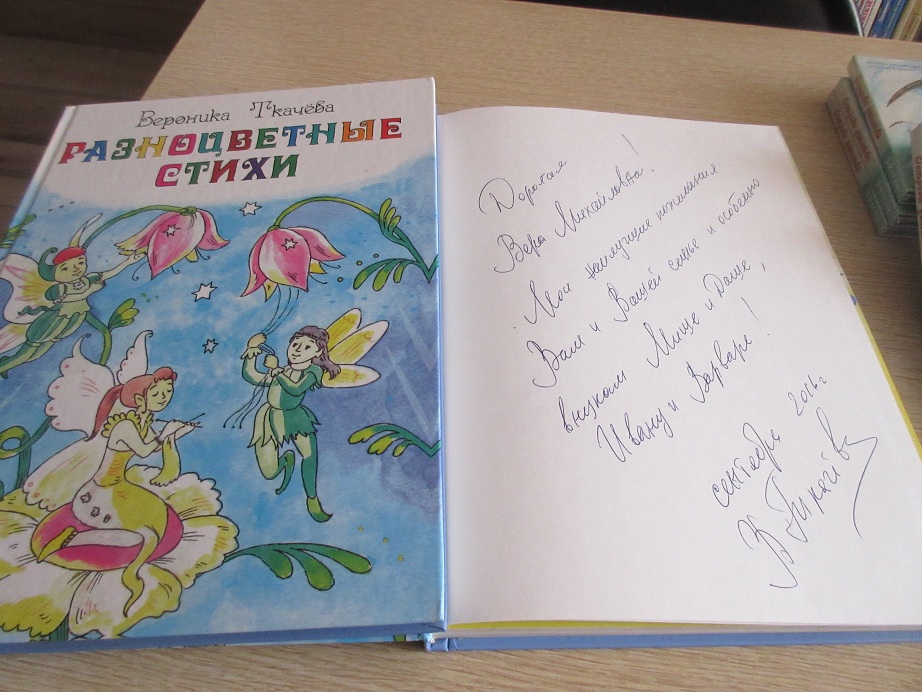 Вероника Ткачёва
РАЗНОЦВЕТНЫЕ
СТИХИ
Дорогая
Вера Михайловна!
Мои наилучшие пожелания
Вам и Вашей семье и особенно
внукам Мише и Даше,
Ивану и Варваре!
сентябрь 2016г
В. Ткачёва